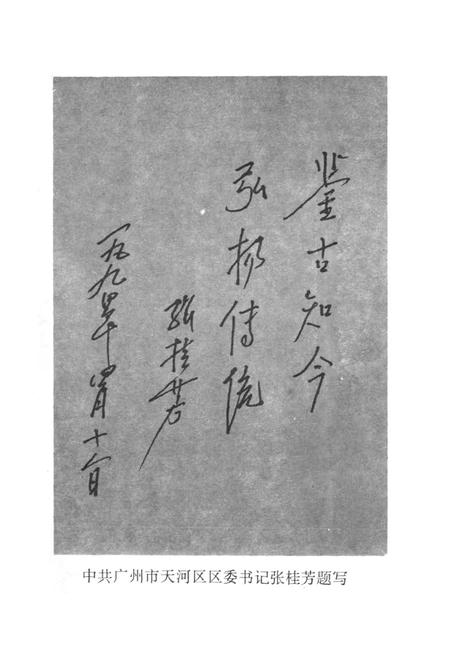 鉴古知今
弘扬传统
张桂芳
一九九四年四月十八日
中共广州市天河区区委书记张桂芳题写